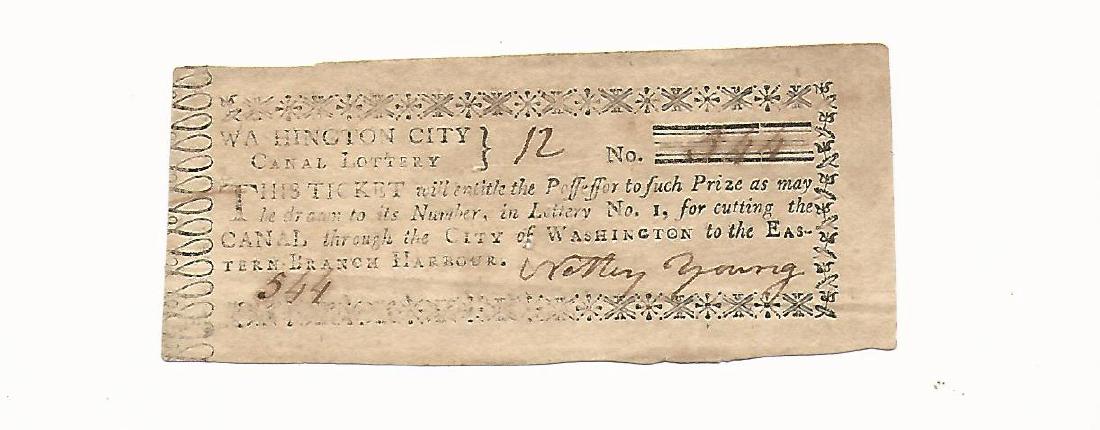 WA HINGTON CITY } 12 No. 544
CANAL LOTTERY
THIS TICKET will entitle the Poſſeſſor to ſuch Prize as may
be drawn to its Number, in Lottery No. 1, for cutting the
CANAL through the CITY of WASHINGTON to the EAS-
TERN-BRANCH HARBOUR. Notley Young
544